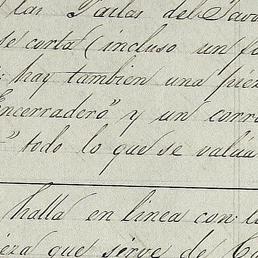 las Partes del Favo
se corta (incluso un fo
hay tambien una piez
Encerradero" y un corre
" todo lo que se valua
halla en linea con la
ieza que sirve de Co